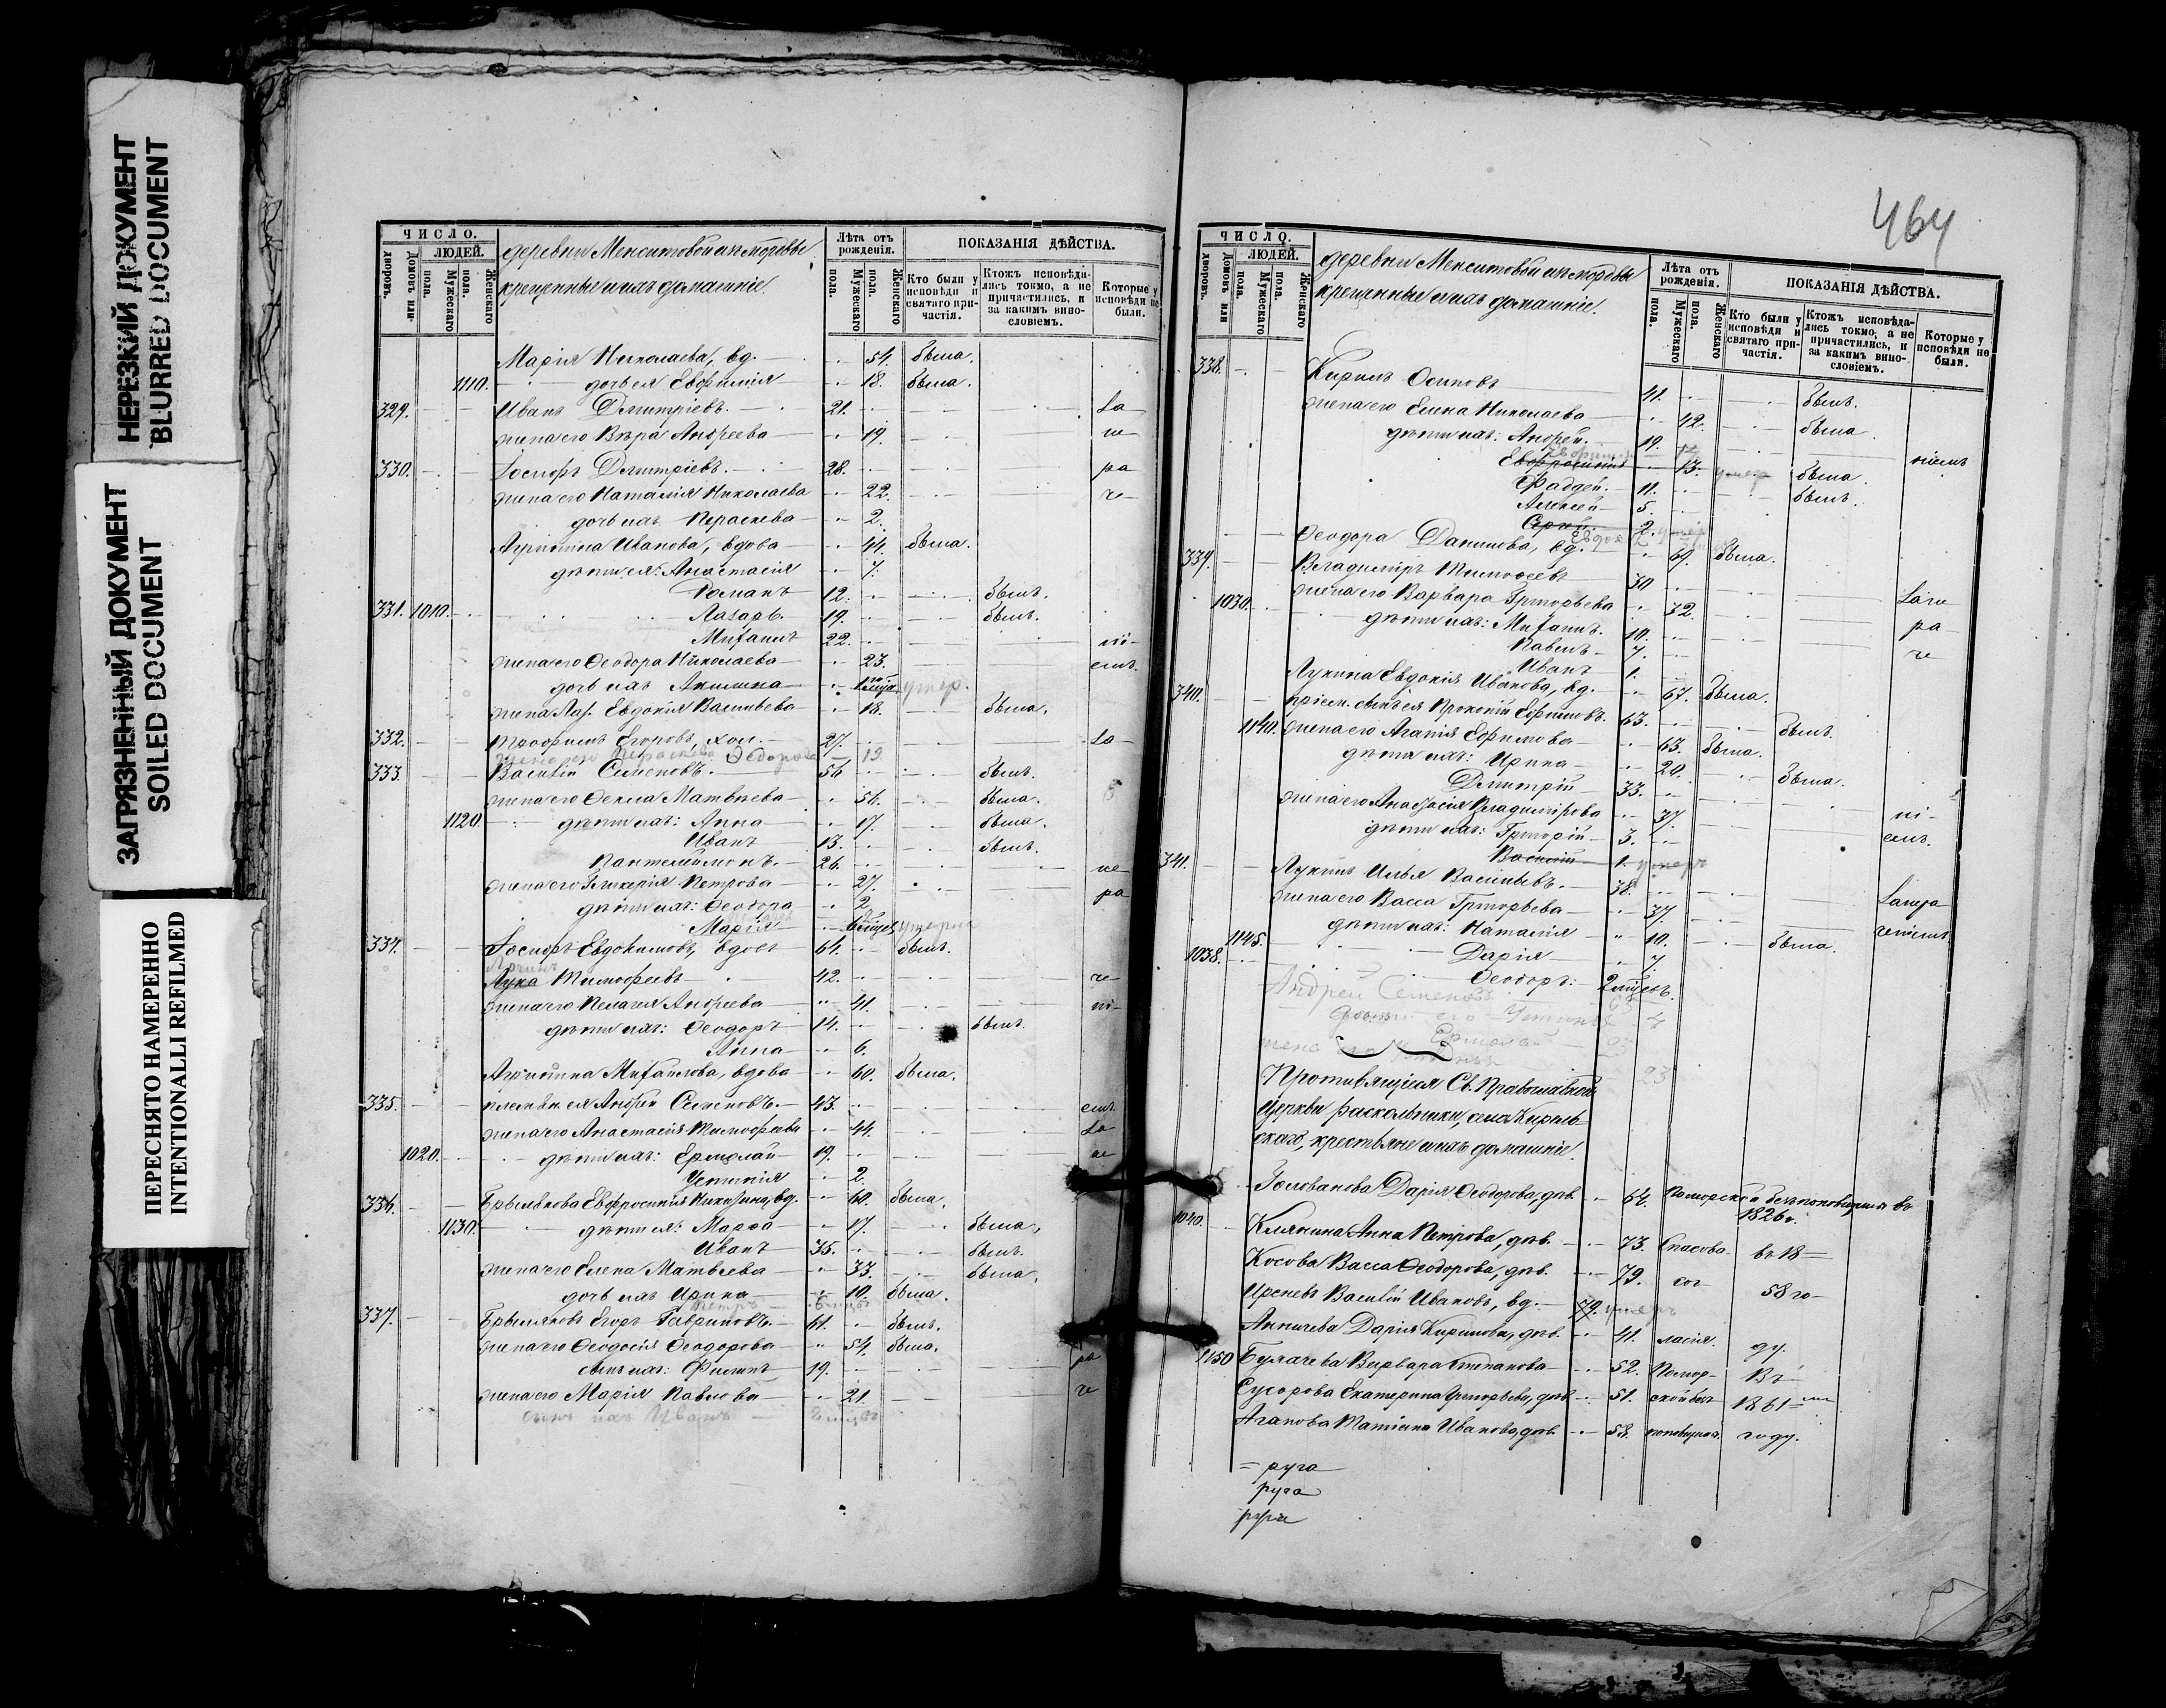 НЕРЕЗКИЙ ДОКУМЕНТ
BLURRED DOCUMENT
ЗАГРЯЗНЕННЫЙ ДОКУМЕНТ
SOILED DOCUMENT
ПЕРЕСНЯТО НАМЕРЕННО
INTENTIONALLI REFILMED
ЧИСЛО.
ЛЮДЕЙ.
Домовъ или дворовъ.
Мужескаго пола.
Женскаго пола.
деревни
крещенные и ихъ домашніе.
Лѣта отъ рожденія.
Мужескаго пола.
Женскаго пола.
ПОКАЗАНІЯ ДѢЙСТВА.
Кто были у исповѣди и святаго причастія.
Ктожъ исповѣдались токмо, а не причастились, и за какимъ винословіемъ.
Которые у исповѣди не были.
Марія Николаева, вд. 54. была.
1110. дочь ея Евфимія 18. была.
329. Иванъ Димитріевъ. 21. Ла
жена его Вѣра Андреева 19. не
330. Іосифъ Димитріевъ. 28. ра
жена его Наталія Николаева 22. че
дочь ихъ Параскева 2.
Агрипина Иванова, вдова 44. была.
дѣти ея: Анастасія 7.
Романъ 12. былъ.
331. 1010. Лазарь. 19. былъ.
Михаилъ 22. ні
жена его Ѳеодора Николаева 23. емъ.
дочь ихъ Акилина умер.
жена Лаз. Евдокія Васильева 18. была.
332. Трофимъ Егоровъ, хол. 27. Ла
жена его Параскева Ѳедорова 19
333. Василій Симеоновъ. 56 былъ.
жена его Ѳекла Матвѣева 56. была.
1120. дѣти ихъ: Анна 17. была.
Иванъ 13. былъ.
Пантелеймонъ. 26. не
жена его Гликерія Петрова 27. ра
дѣти ихъ: Ѳеодора 2.
Марія умерла
334. Іосифъ Евдокимовъ, вдовъ 61. былъ.
Лука Тимоѳеевъ 42. че
жена его Пелагея Андреева 41. ні
дѣти ихъ: Ѳеодоръ 14. былъ.
Анна 6.
Агрипина Михайлова, вдова 60. была.
335. племян. ея Андрей Симеоновъ. 43. емъ.
жена его Анастасія Тимоѳеева 44. Ла
1020. дѣти ихъ: Ермолай 19. не
Устинія 2.
336. Брылякова Евфросинія вд. 60. была.
1130. дѣти ея: Марѳа 17. была,
Иванъ 35. былъ.
жена его Елена Матвѣева 33. была,
дочь ихъ Ирина 10. была.
337. Брыляковъ Егоръ Гавриловъ. 61. былъ.
жена его Ѳеодосія Ѳеодорова 54. была.
сынъ ихъ: Филипъ 19. ра
жена его Марія Павлова 21. че
сынъ ихъ Иванъ
464
ЧИСЛО.
ЛЮДЕЙ.
Домовъ или дворовъ.
Мужескаго пола.
Женскаго пола.
деревни
крещенные и ихъ домашніе.
Лѣта отъ рожденія.
Мужескаго пола.
Женскаго пола.
ПОКАЗАНІЯ ДѢЙСТВА.
Кто были у исповѣди и святаго причастія.
Ктожъ исповѣдались токмо, а не причастились, и за какимъ винословіемъ.
Которые у исповѣди не были.
338. Кирилъ Осиповъ 41. былъ.
жена его Елена Николаева 42. была.
дѣти ихъ: Андрей. 19. ніемъ
Евфросинія 13. была.
Фаддей. 11. былъ.
Алексей 5.
Сергій 2. умеръ
Ѳеодора Данилова, вд. 69. была.
339. Владиміръ Тимоѳеевъ 30 Ла не
1030. жена его Варвара Григорьева 32. ра
дѣти ихъ: Михаилъ. 10. че
Павелъ 7.
Иванъ 1.
340. Лукина Евдокія Иванова, вд. 67. была.
пріем. сынъ ея Прокопій Ефимовъ. 63. былъ.
1140. жена его Агапія Ефимова 63. была.
дѣти ихъ: Ирина 20. была.
Димитрій 33.
жена его Анастасія Владимірова 37. ні
дѣти ихъ: Григорій 3. емъ.
Василій 1. умеръ
341. Лукинъ Илья Васильевъ. 38.
жена его Васса Григорьева 37. Ла нера
дѣти ихъ: Наталія 10. была. ченіемъ
1038. 1145. Дарія 7.
Ѳеодоръ: 2
Андрей Семеновъ
Ермолай 23
Противящіеся Св. Православной
Церкви раскольники, села
скаго, крестьяне и ихъ домашніе.
Голованова Дарія Ѳеодорова, дѣв. 64. Поморской безпоповщины въ
1826 г.
1040. Клянина Анна Петрова, дѣв. 73. Спасова въ 18
Косова Васса Ѳеодорова, дѣв. 79. сог 58 го
Василій Ивановъ, вд. 79. умеръ
Аникиева Дарія Кирилова, дѣв. 41. ласія. ду.
1150 Булачева Варвара Степанова 52. Помор Въ
Сусорова Екатерина Григорьева, дѣв 51. ской без 1861
Агапова Татіана Иванова, дѣв. 58. поповщины. году.
руга
руга
руга